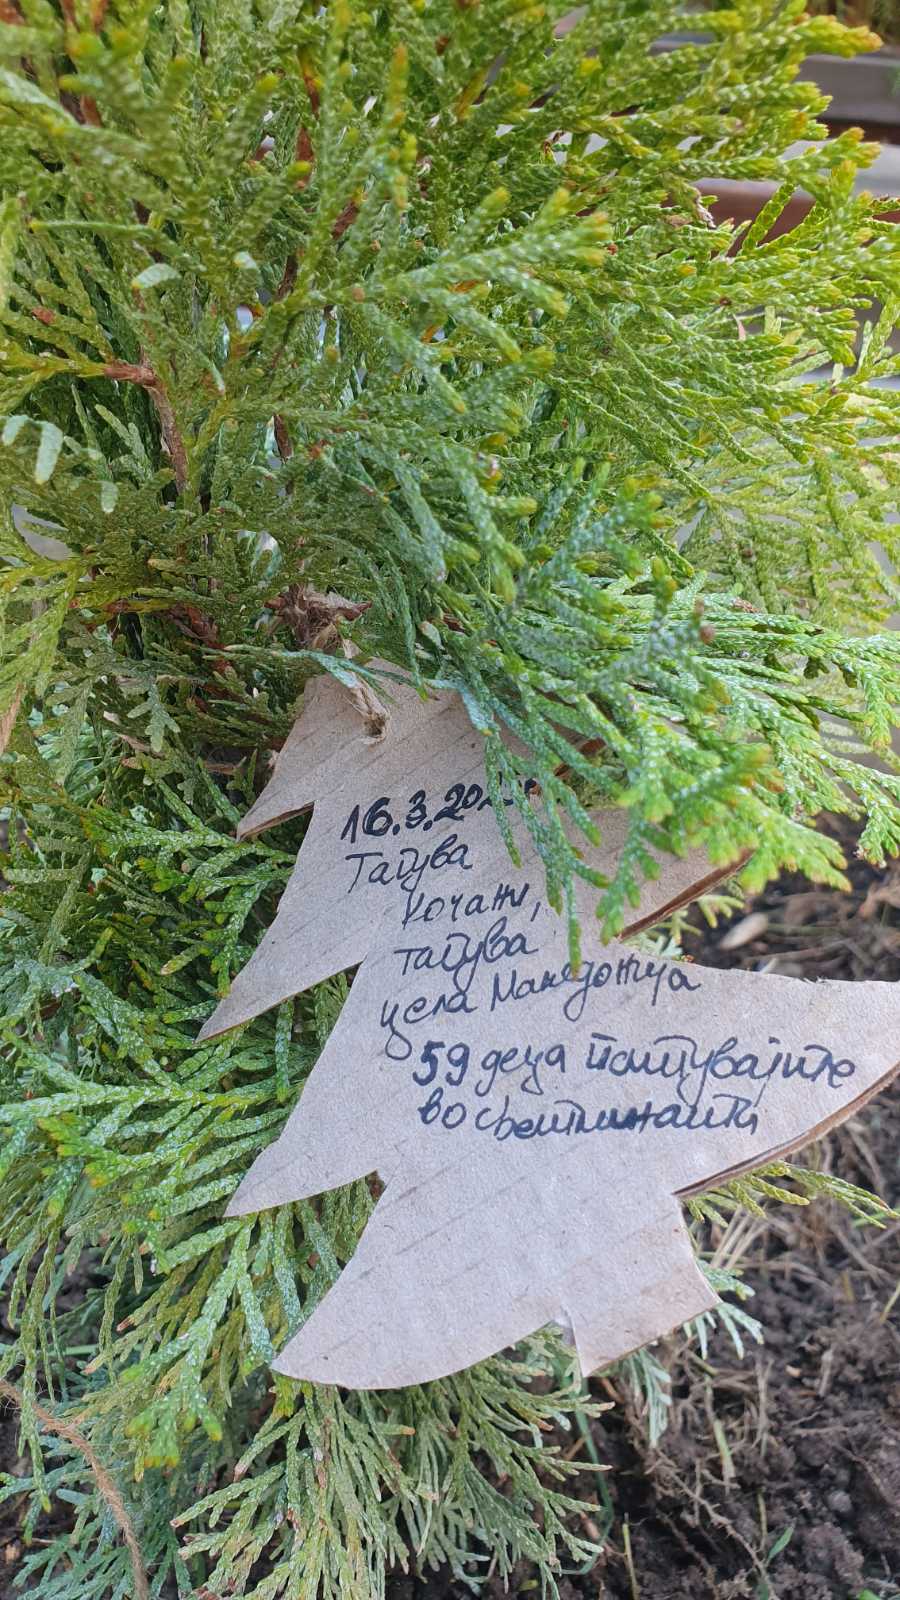 16.3.202
Тагува
Кочани,
тагува
цела Македонија
59 деца патувајте
во светлината